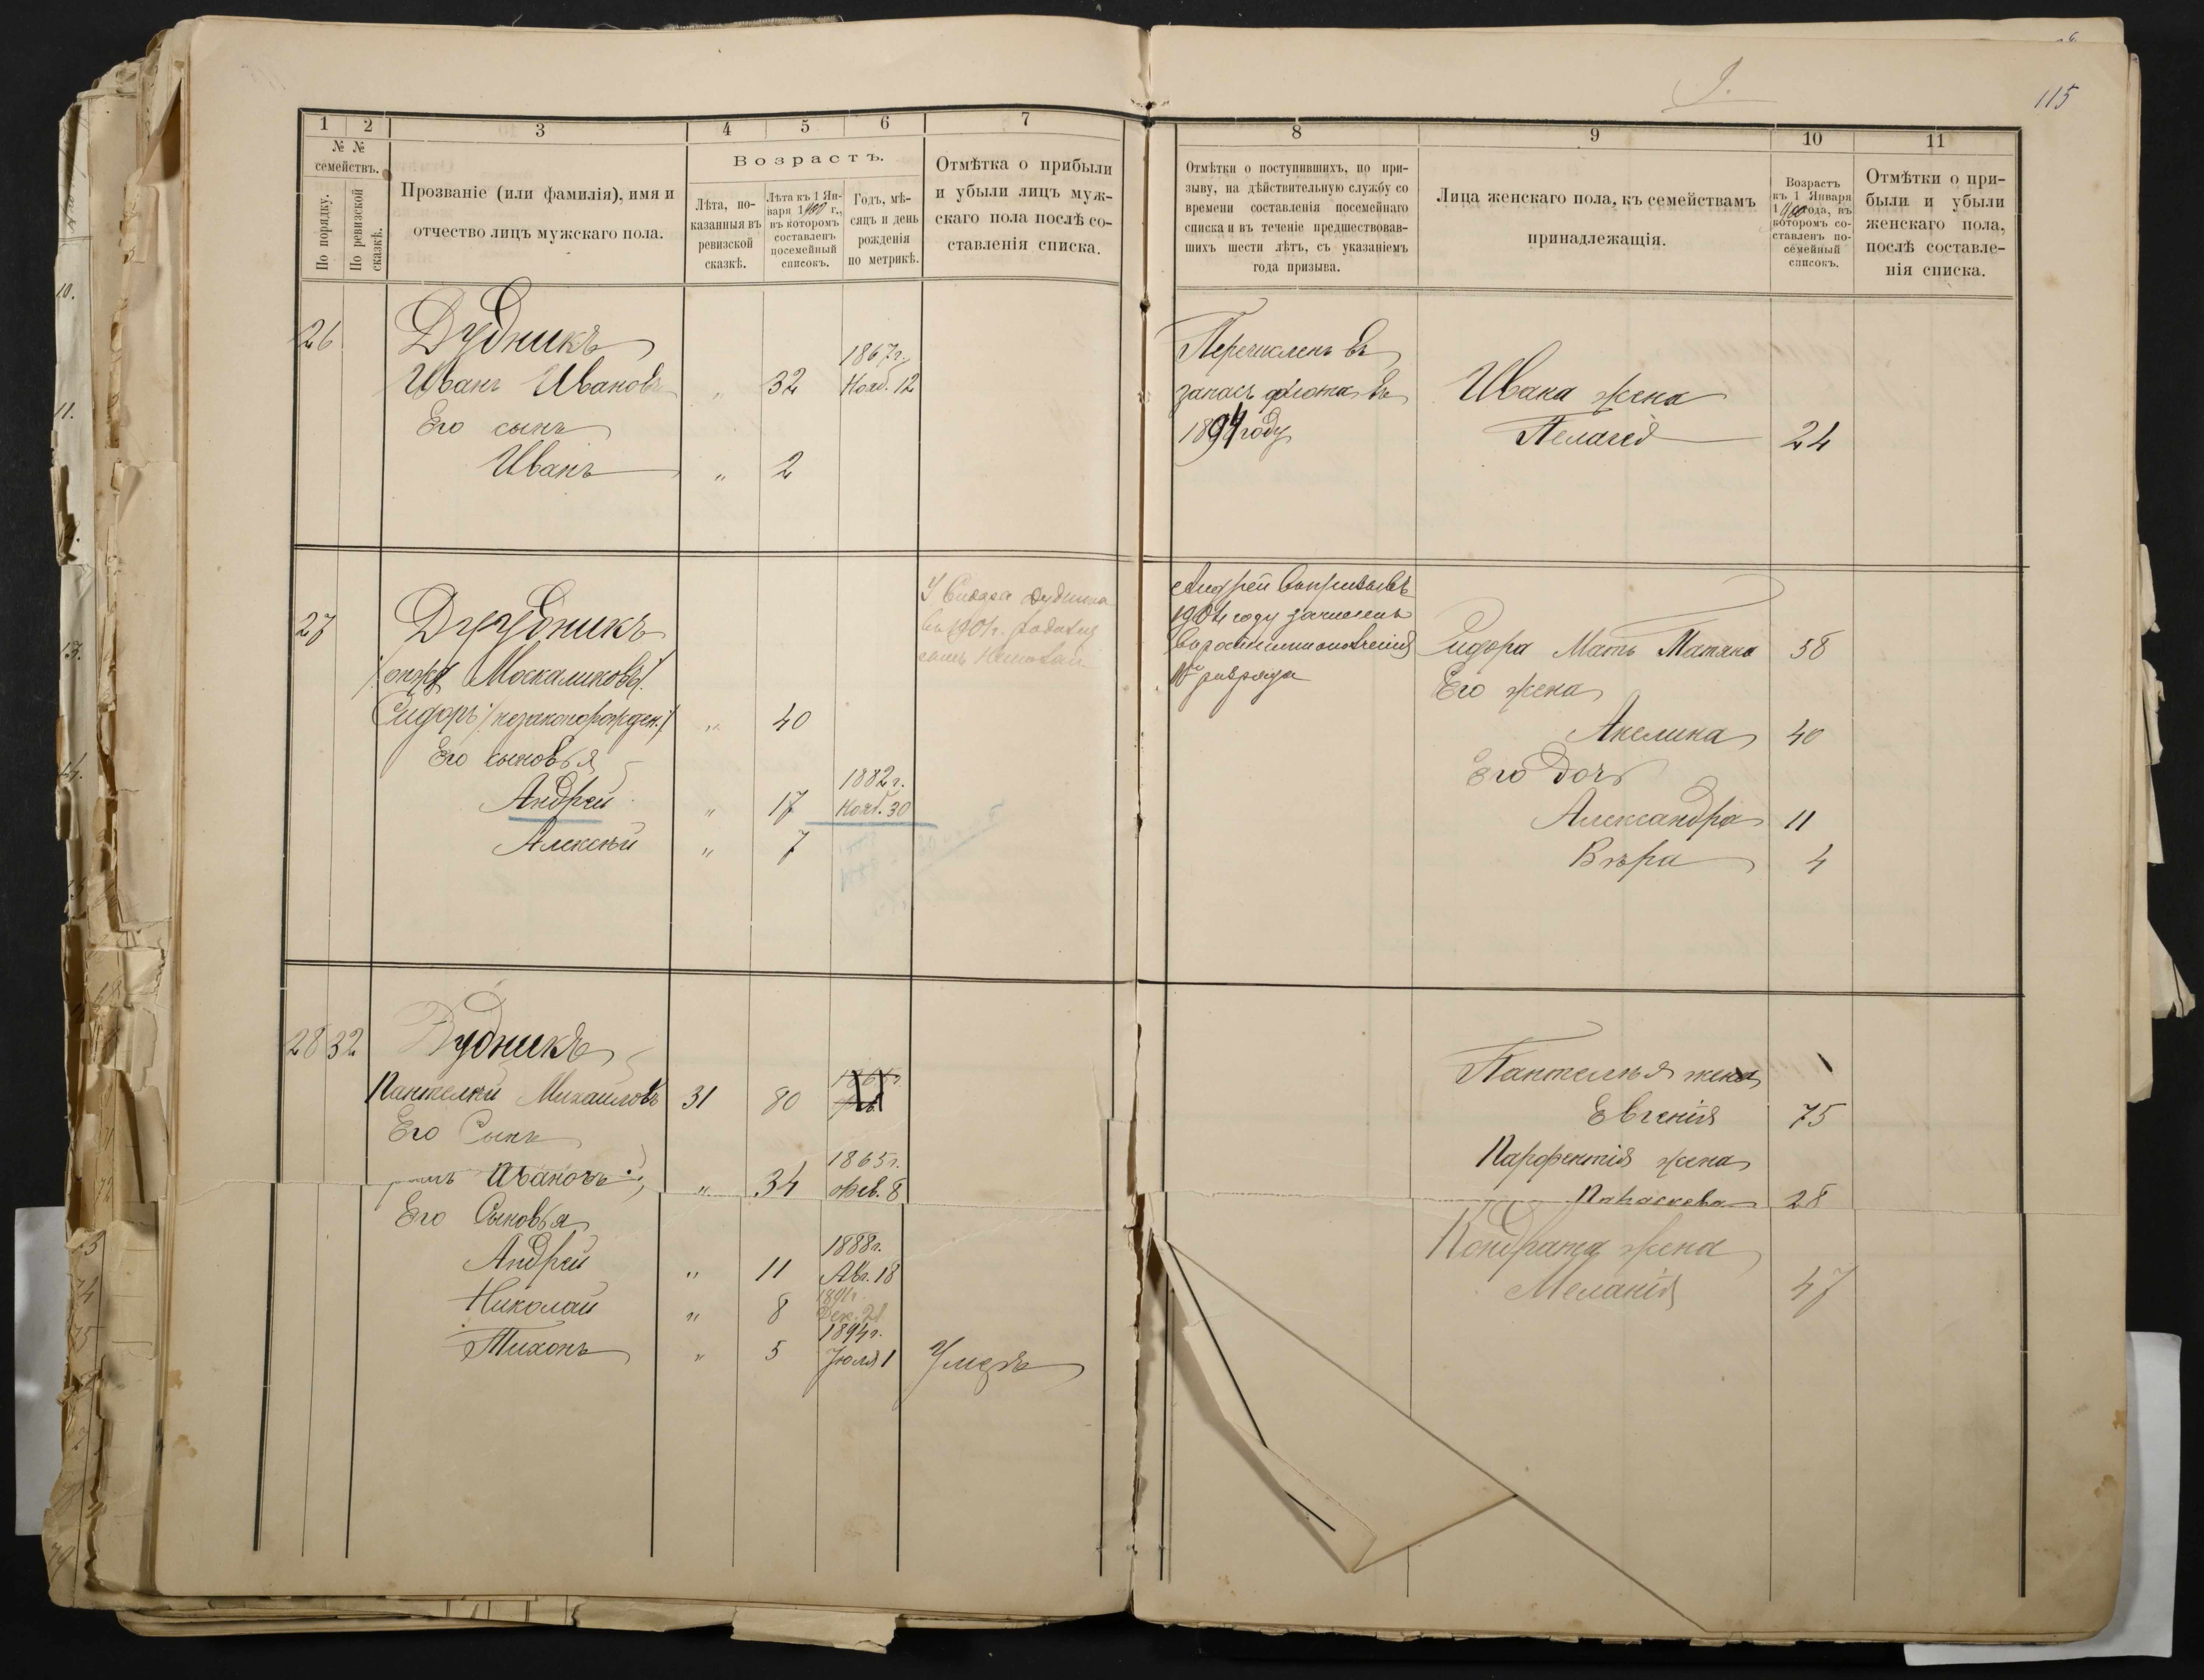 115
1
2
3
4
5
6
7
№ №
семействъ.
По порядку.
По ревизской
сказкѣ.
Прозваніе (или фамилія), имя и
отчество лицъ мужскаго пола.
Возрастъ.
Лѣта, по-
казанныя въ
ревизской
сказкѣ.
Лѣта къ 1 Ян-
варя 1900 г.,
въ которомъ
составленъ
посемейный
списокъ.
Годъ, мѣ-
сяцъ и день
рожденія
по метрикѣ.
Отмѣтка о прибыли
и убыли лицъ муж-
скаго пола послѣ со-
ставленія списка.
26
Дудникъ
1867г.
Иванъ Ивановъ „ 32 Нояб. 12
Его сынъ
Иванъ „ 2
27
Дудникъ
Москаликовъ
Сидоръ /незаконорожден./ „ 40
Его сыновья
1882 г.
Андрей „ 17 Нояб. 30
Алексѣй „ 7
У Сидора Дудника
въ 1901г. родился
сынъ
28 32
Дудникъ
Пантелѣй Михайловъ 31 80
Его Сынъ
1865г.
Ивановъ „ 34 Фев. 8
Его Сыновья
1888г.
Андрей „ 11 Авг. 18
1891г.
Николай „ 8 Дек.
1894г.
Тихонъ „ 5 Іюля 1 Умеръ
8
9
10
11
Отмѣтки о поступившихъ, по при-
зыву, на дѣйствительную службу со
времени составленія посемейнаго
списка и въ теченіе предшествовав-
шихъ шести лѣтъ, съ указаніемъ
года призыва.
Лица женскаго пола, къ семействамъ
принадлежащія.
Возрастъ
къ 1 Января
1900 года, въ
которомъ со-
ставленъ по-
семейный
списокъ.
Отмѣтки о при-
были и убыли
женскаго пола,
послѣ составле-
нія списка.
Перечисленъ въ
запасъ флота въ
1894 году
Ивана жена
Пелагея 24
Андрей въ призывъ
1904 году зачисленъ
разряда
Сидора Мать Татьяна 58
Его жена
Акелина 40
Его дочь
Александра 11
Вѣра 4
Пантелѣя жена
Евгенія 75
Парфентія жена
Параскева 28
Кондрата жена
Меланія 47